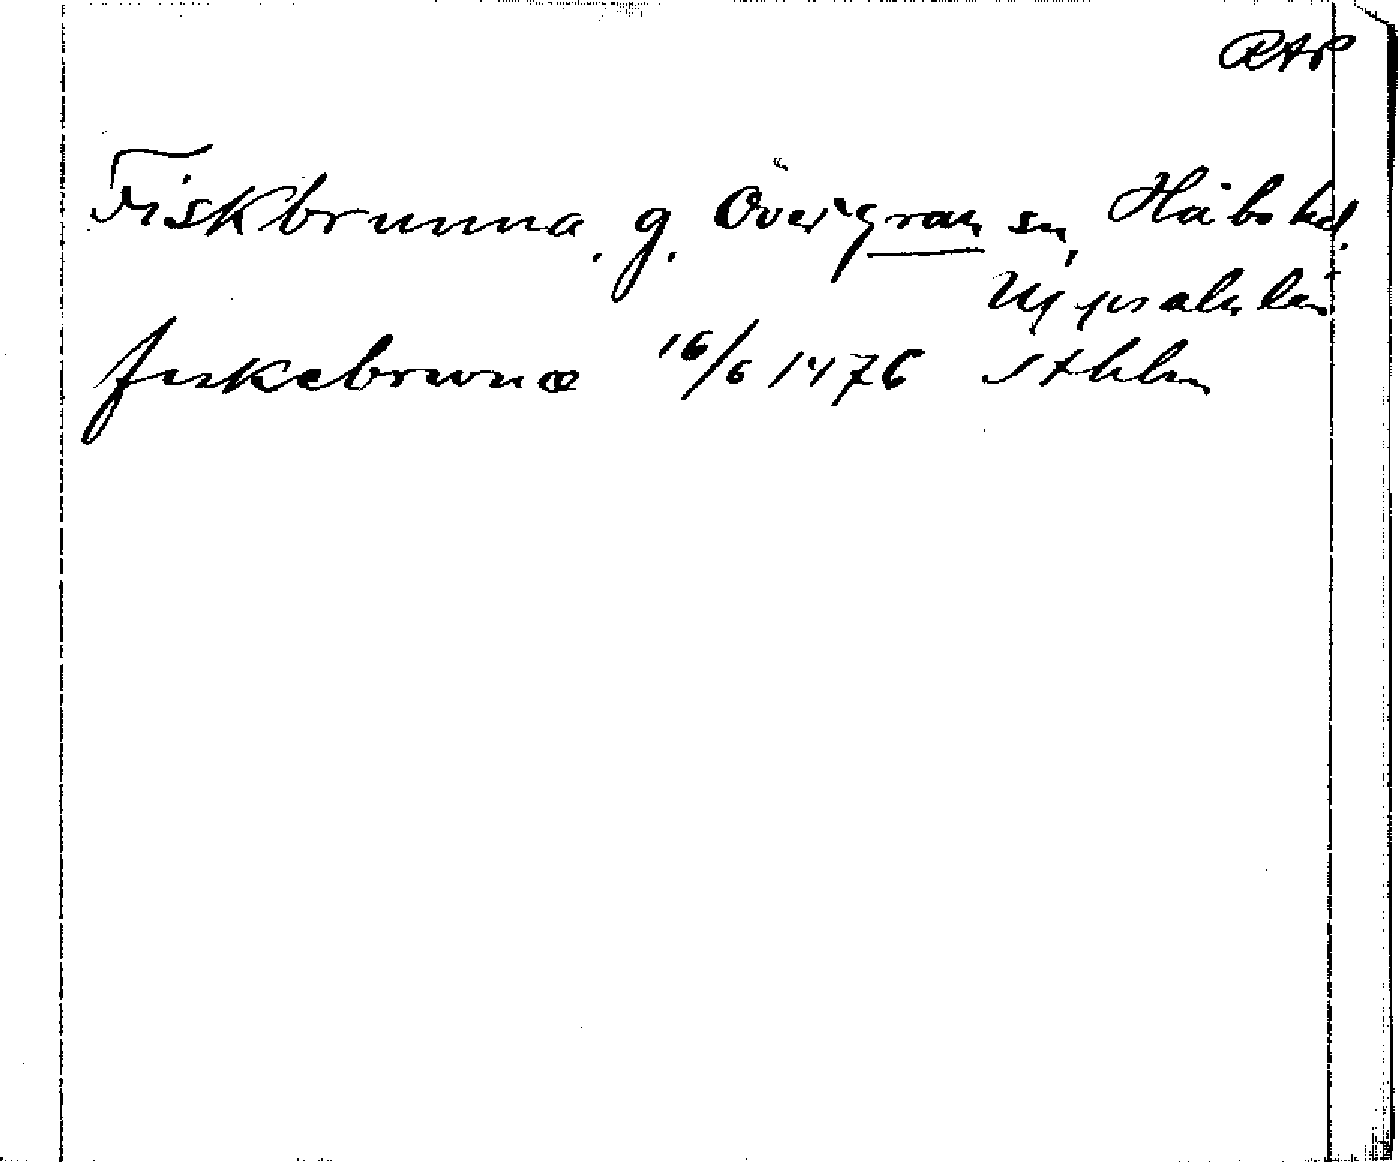 RAP
Fiskbrunna. g. Övergran sn, Håbo hd.
Uppsala län
fiskebrwnæ 16/6 1476 Sthlm